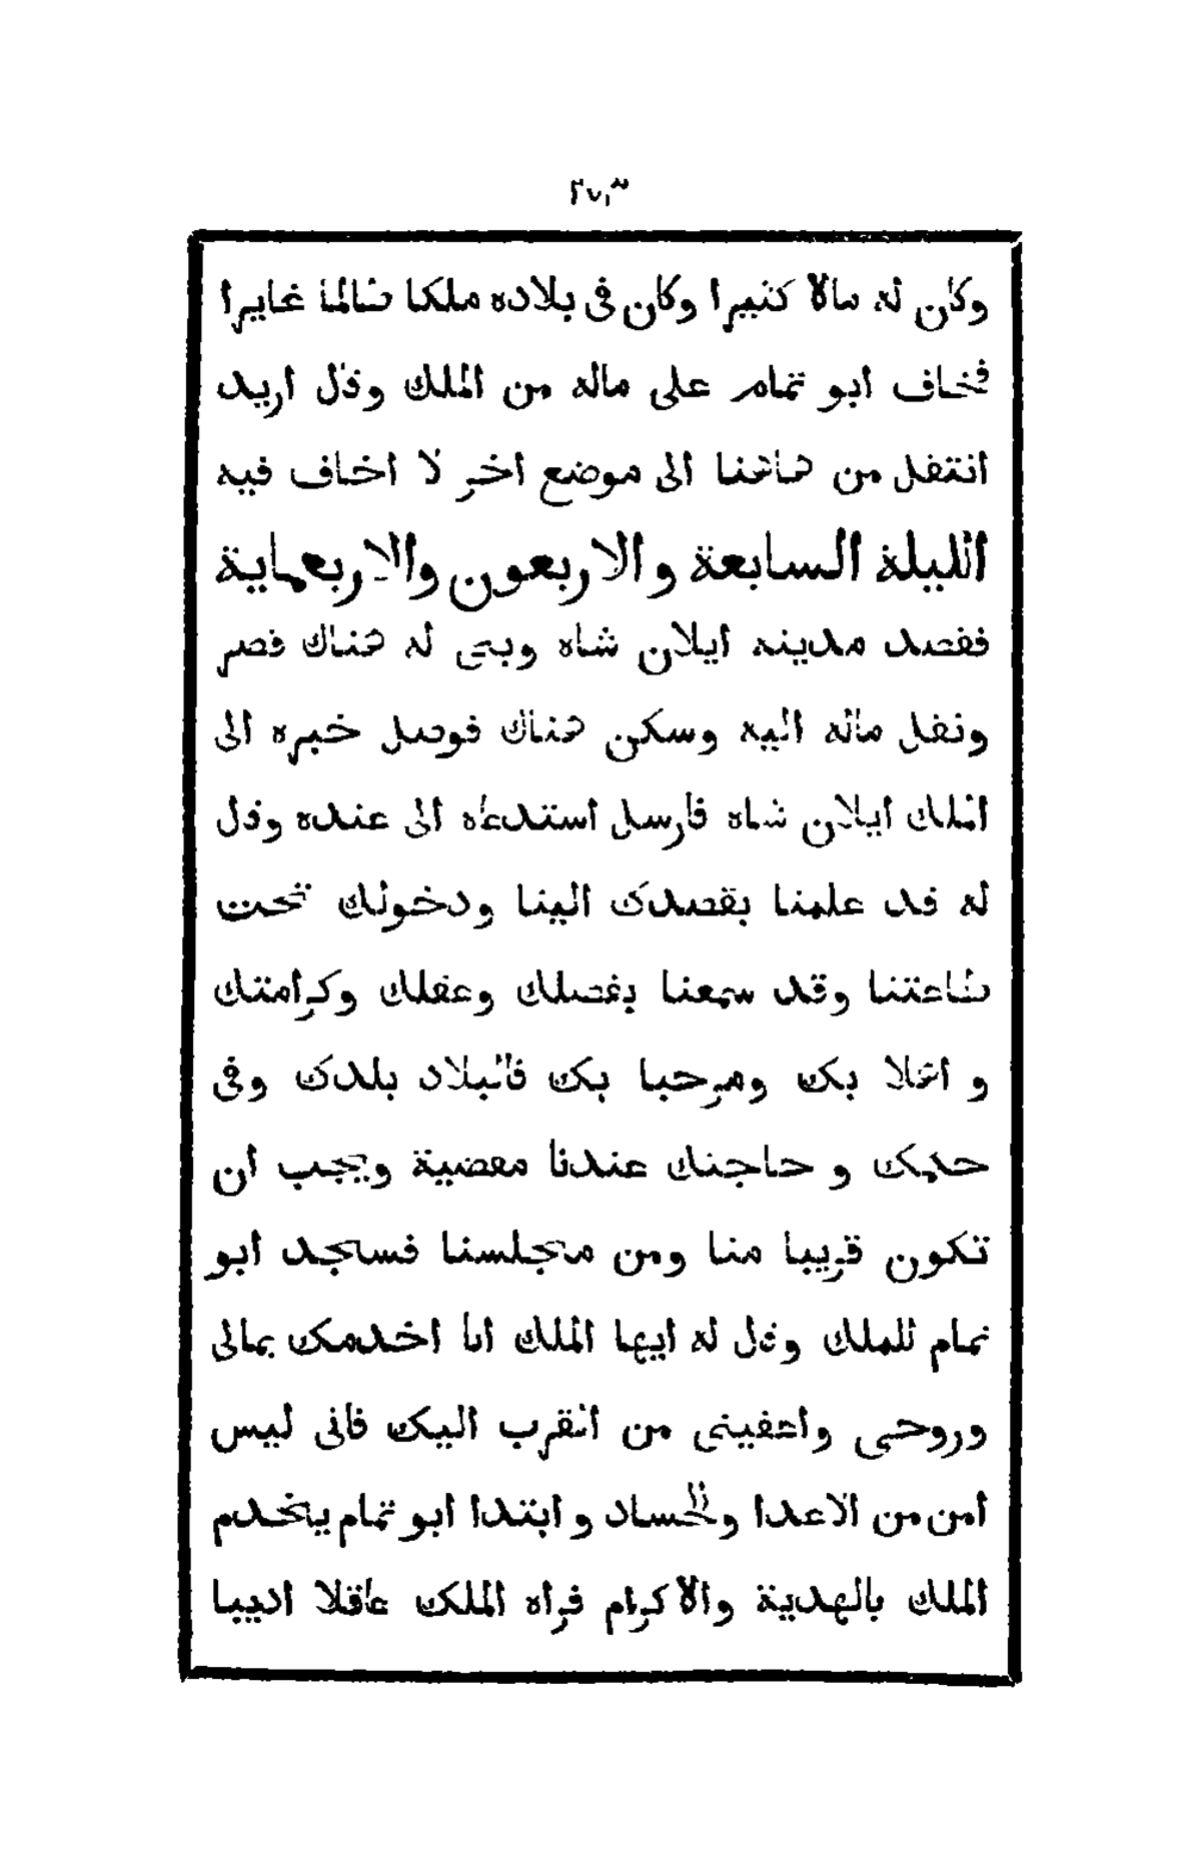 وكان له مالا كثيرا وكان فى بلاده ملكا ظالما غايرا
فخاف ابو تمام على ماله من الملك وقال اريد
انتقل من هاهنا الى موضع اخر لا اخاف فيه
الليلة السابعة والاربعون والاربعماية
فقصد مدينه ايلان شاه وبنى له هناك قصر
ونقل ماله اليه وسكن هناك فوصل خبره الى
الملك ايلان شاه فارسل استدعاه الى عنده وقال
له قد علمنا بقصدك الينا ودخولك تحت
طاعتنا وقد سمعنا بفضلك وعقلك وكرامتك
و اهلا بك ومرحبا بك فالبلاد بلدك وفى
حكمك و حاجتك عندنا مقضية ويجب ان
تكون قريبا منا ومن مجلسنا فسجد ابو
تمام للملك وقال له ايها الملك انا اخدمك بمالى
وروحى واعفينى من التقرب اليك فانى ليس
امن من الاعدا والحساد و ابتدا ابو تمام يخدم
الملك بالهدية والاكرام فراه الملك عاقلا اديبا